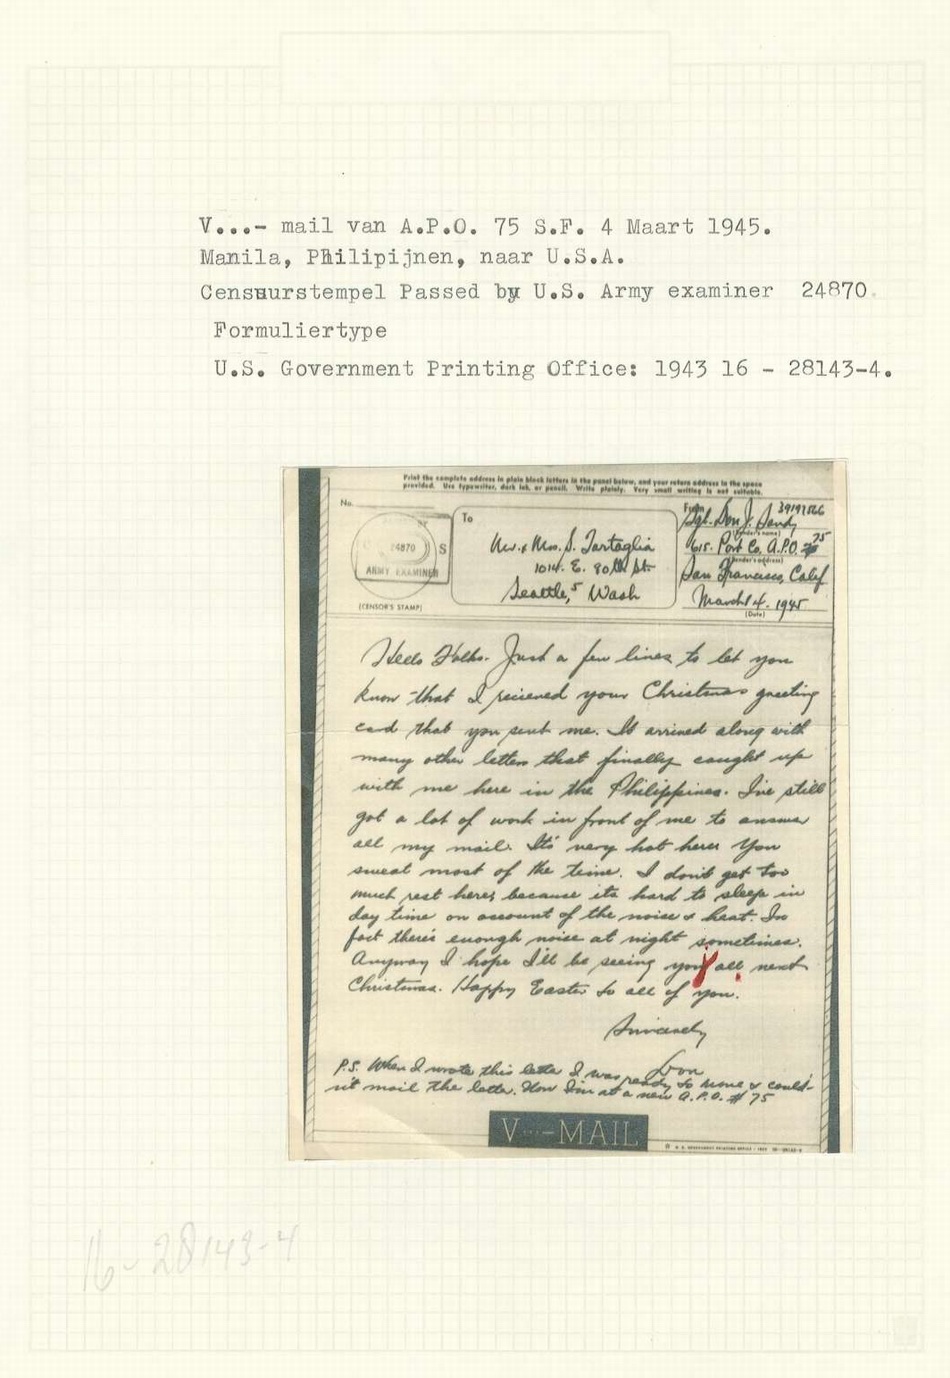 V...- mail van A.P.O. 75 S.F. 4 Maart 1945.
Manila, Philipijnen, naar U.S.A.
Censuurstempel Passed by U.S. Army examiner 24870.
Formuliertype
U.S. Government Printing Office: 1943 16 - 28143-4.
Print the complete address in plain block letters in the panel below, and your return address in the space
provided. Use typewriter, dark ink, or pencil. Write plainly. Very small writing is not suitable.
No.
BY
24870
S
ARMY EXAMINER
(CENSOR'S STAMP)
To
Mr. & Mrs. S. Tartaglia
1014. E. 80th St.
Seattle, 5 Wash
From
Sgt. Don J. 39191566
(Sender's name)
615. Port Co. A.P.O. # 75
(Sender's address)
San Francisco, Calif
March 4. 1945
(Date)
Hello Folks. Just a few lines to let you
know that I recieved your Christmas greeting
card that you sent me. It arrived along with
many other letters that finally caught up
with me here in the Philippines. I've still
got a lot of work in front of me to answer
all my mail. It's very hot here. You
sweat most of the time. I don't get too
much rest here, because its hard to sleep in
day time on account of the noise & heat. In
fact there's enough noise at night sometimes.
Anyway I hope I'll be seeing you all next
Christmas. Happy Easter to all of you.
Sincerely
Don
P.S. When I wrote this letter I was ready to move & could-
n't mail the letter. Now I'm at a new A.P.O. # 75
V···-MAIL
U. S. GOVERNMENT PRINTING OFFICE : 1943 16-28143-4
16-28143-4